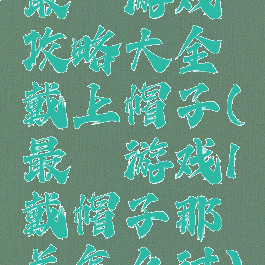 最 游戏
攻略大全
戴上帽子(
最 游戏|
戴帽子那